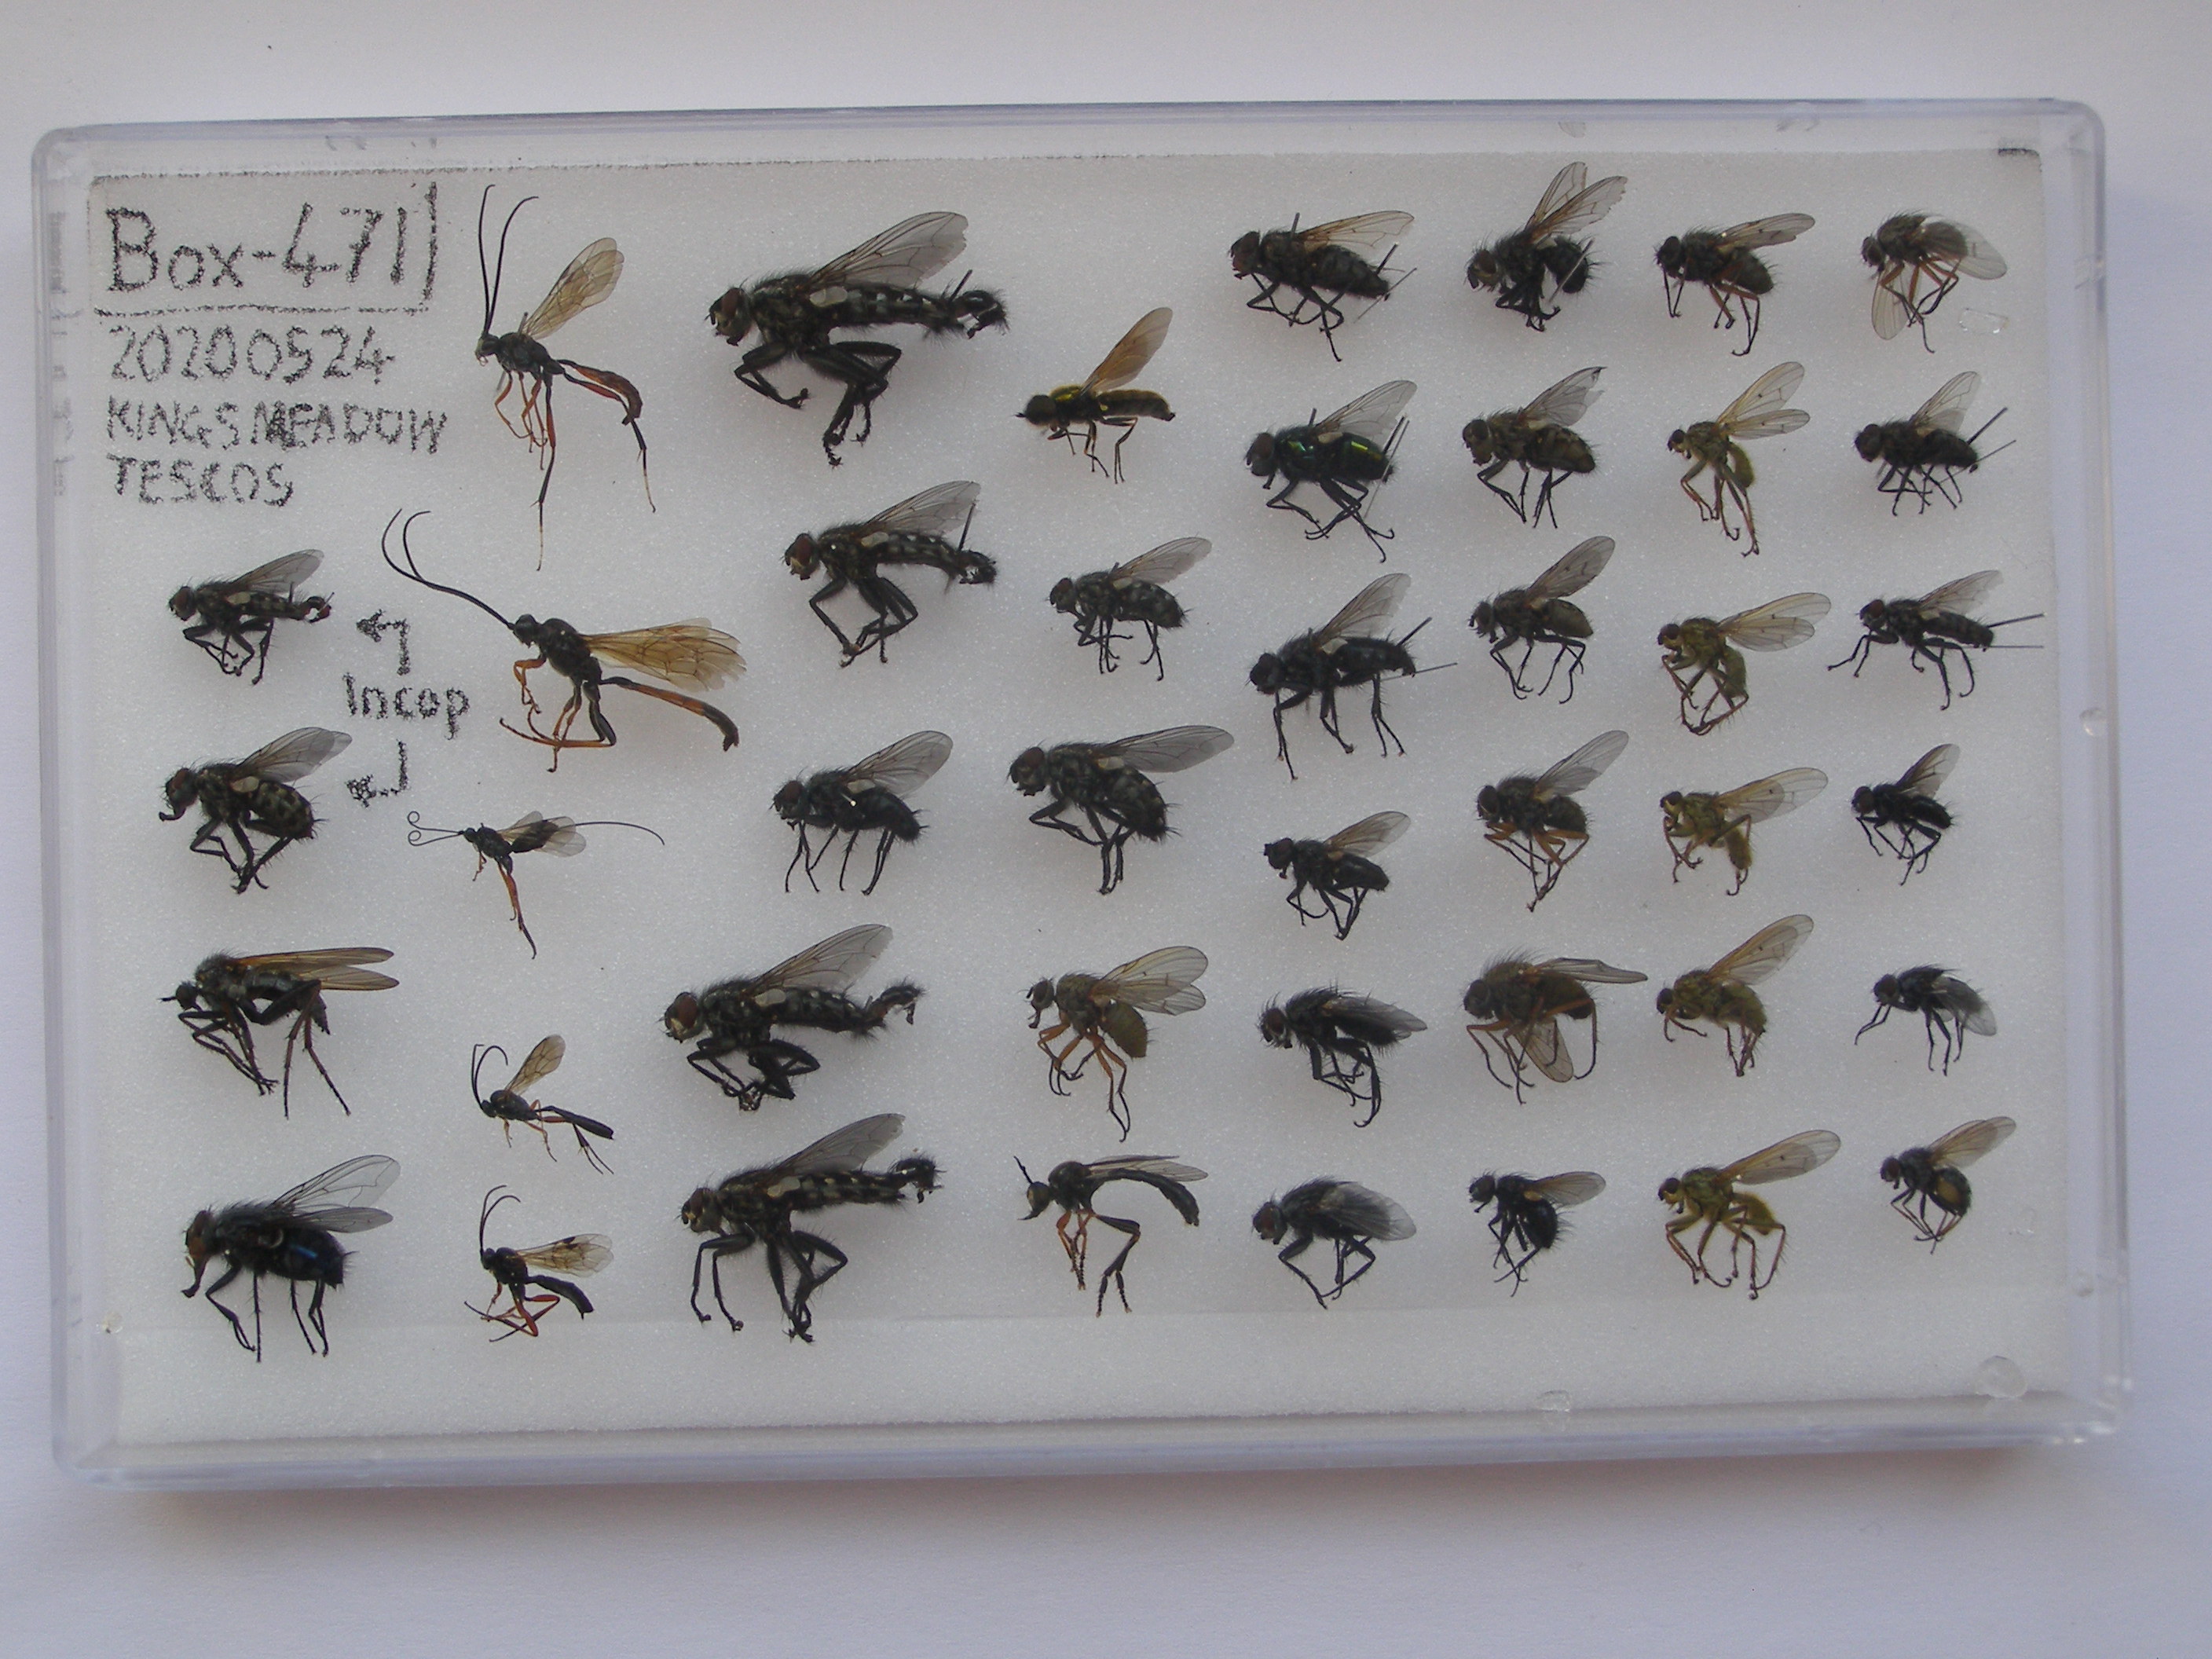 Box-4711
20200524
KINGSMEADOW
TESCOS
Incop